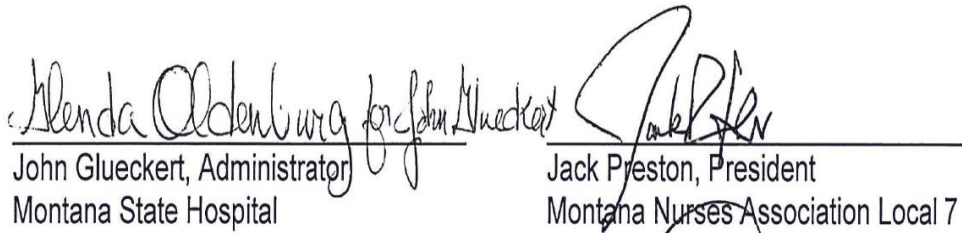 Glenda Oldenburg for John Glueckert
John Glueckert, Administrator
Montana State Hospital
Jack Preston, President
Montana Nurses Association Local 7